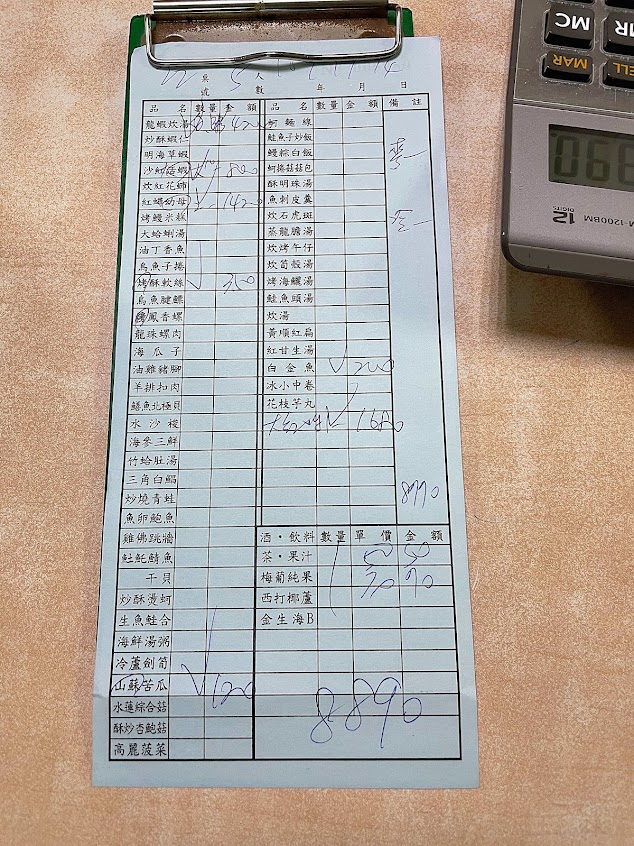 桌 5 人 年 月 日
號 數
品 名 數量 金 額 品 名 數量 金 額 備 註
龍蝦炊湯 420 蚵麵線
炒酥蝦仁 鮭魚子炒飯
明海草蝦 鰻粽白飯
沙紅活蝦 800 蚵捲菇菇包
炊紅花鱘 酥明珠湯
紅蟳幼母 1420 魚刺皮囊
烤鰻米糕 炊石虎斑
大蛤蜊湯 蒸龍膽湯
油丁香魚 炊烤午仔
烏魚子捲 炊筍殼湯
烤酥軟絲 350 烤海鱺湯
烏魚腱鰾 鮭魚頭湯
鳳香螺 炊湯
龍珠螺肉 黃順紅扁
海瓜子 紅甘生湯
油雞豬腳 白金魚 200
羊排扣肉 冰小中卷
鱔魚北極貝 花枝芋丸
水沙梭 1680
海參三鮮
竹蛤肚湯
三角白鯧
炒燒青蛙
魚卵鮑魚
雞佛跳牆 酒・飲料 數量 單價 金額
魠魠鯖魚 茶・果汁 50 50
干貝 梅葡純果
炒酥燙蚵 西打椰蘆
生魚鮭合 金生海B
海鮮湯粥
冷蘆劍筍
山蘇苦瓜 120
水蓮綜合菇 8890
酥炒杏鮑菇
高麗菠菜
MC
MR
MAR
12
DIGITS
M-1200BM